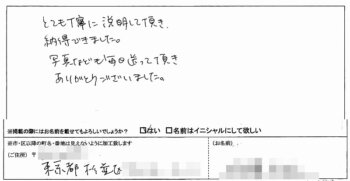 とても丁寧に説明して頂き
納得できました。
写真なども毎日送って頂き
ありがとうございました。
※掲載の際にはお名前を載せてもよろしいでしょうか？ はい 名前はイニシャルにして欲しい
※市・区以降の町名・番地は見えないように加工致します
（ご住所） 〒
（お名前）
東京都杉並区